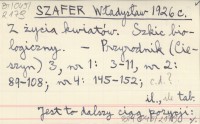 SZAFER Władysław 1926 c.
Z życia kwiatów. Szkic bio-
logiczny. - Przyrodnik (Cie-
szyn) 3, nr 1: 3-11, nr 2:
89-108; nr 4: 145-152; c.d.?
il., tab.
Jest to dalszy ciąg pozycji: